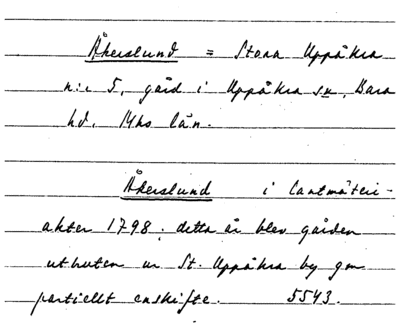 Åkerslund = Stora Uppåkra
n:r 5, gård i Uppåkra sn, Bara
hd, Mhs län.
Åkerslund i lantmäteri-
akter 1798. detta år blev gården
utbruten ur St. Uppåkra by gm
partiellt enskifte. 5543.